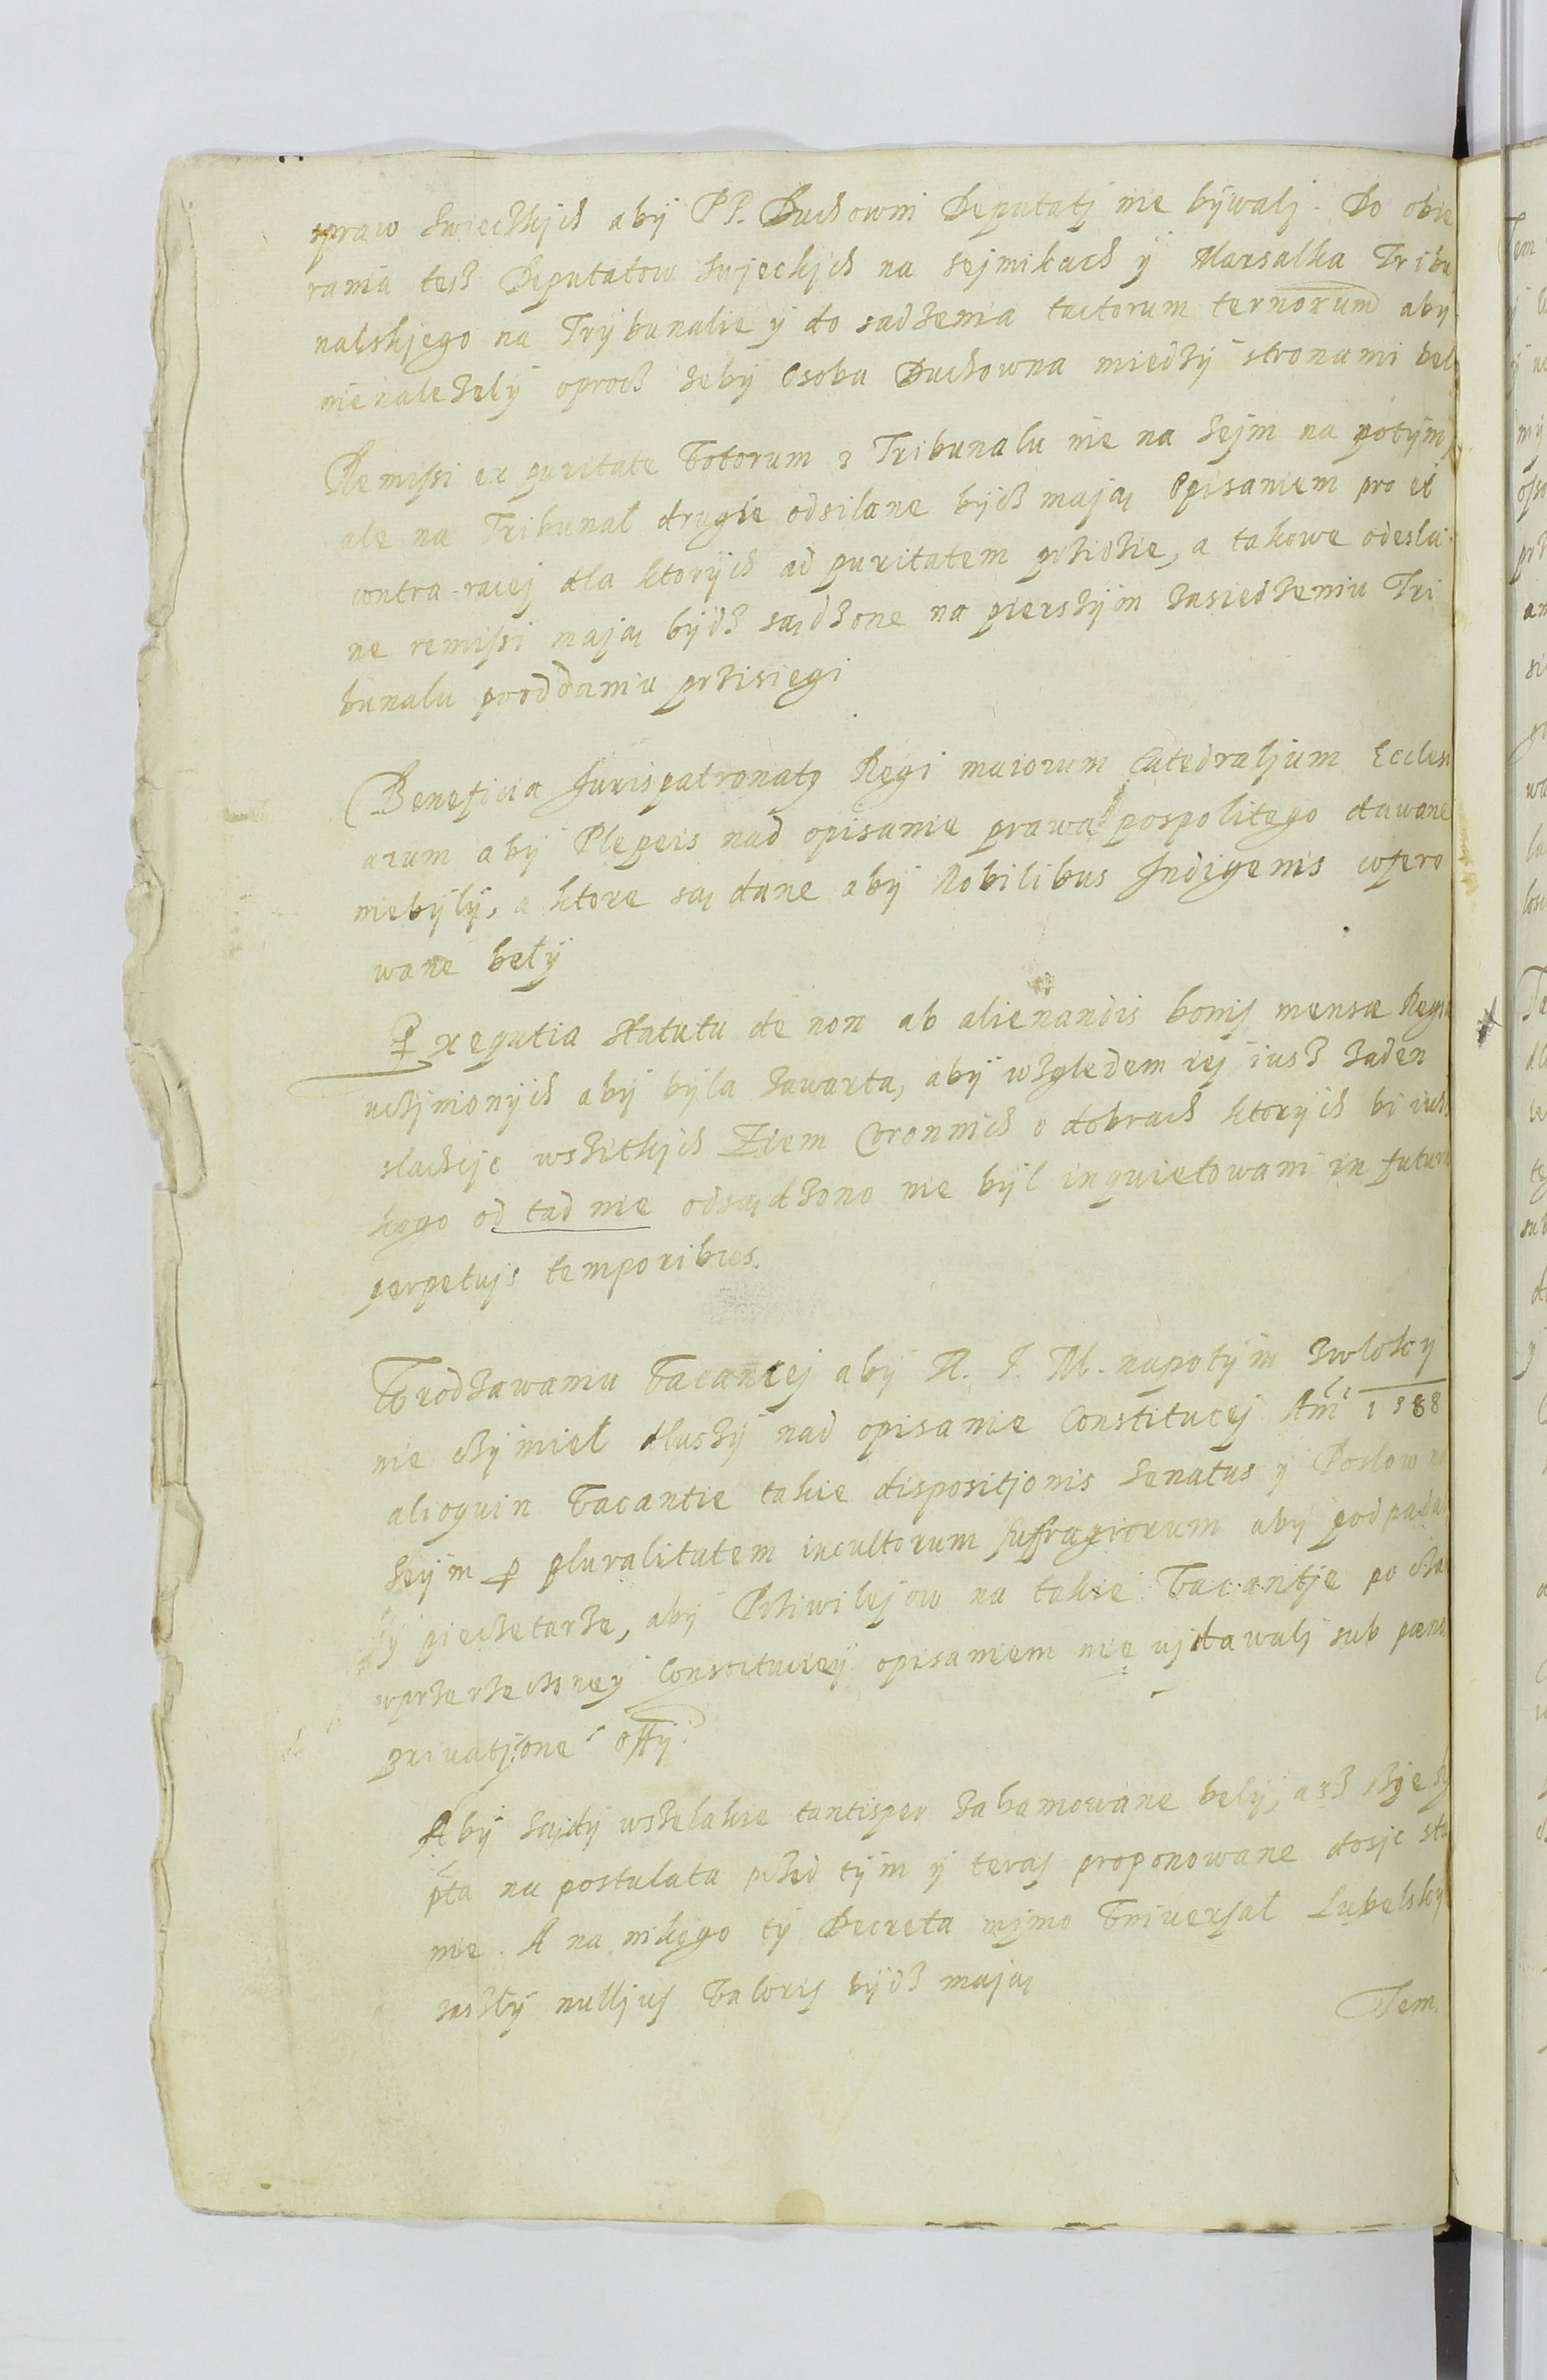 spraw Swieczkich aby PP. Duchowni Deputatj nie bywalj. Do obie
rania tesz Deputatow Swjeckich na sejmikach y Marsalka Tribu
nalskjego na Trybunalie y do sadzenia tactorum ternorum aby
nienalezely oprocz zeby Osoba Duchowna miedzy stronami bel
Remissi ex paritate Votorum z Tribunalu nie na Sejm na potym,
ale na Tribunal drugie odsilane bycz mają Opisaniem pro et
contra racej dla ktorych ad paritatem przidzie, a takowe odesla
ne remissi mają bydz sądzone na pierszym zasiedzeniu Tri
bunalu pooddaniu przisiegi
Beneficia Jurispatronatus Regi maiorum Catedraljum Eccles
arum aby Plepeis nad opisanie prawa pospolitego dawane
niebyly, a ktore są dane aby Nobilibus Indigenis cofero
wane bely
Exequtia Statutu de non ab alienandis bonis mensae Regi
uczjnionych aby byla zawarta, aby wzgledem iej iusz zaden
slachcjc wszitkich Ziem Coronnich o dobrach ktorych bi iusz
kogo od tad nie odsądzono nie byl inquietowani in futuru
perpetujs temporibus.
Wrodzawaniu Vacancej aby K. J. M. napotym zwloky
nie czynieł dluszy nad opisanie Constitucej Anni 1588
alioquin Vacantie takie dispositjonis Senatus y Poslow na
Seym per pluralitatem incultorum suffragiorum aby podpadal
y pieczetarze, aby Prziwilejow na takie Vacantje po cza
wprzerzeczoney Constituciey opisaniem nie wjdawalj sub pœna
privatjone offy.
Aby Sądy wszelakie tantisper zahamowane bely, asz
pta na postulata przed tym y teras proponowane dosjc sta
nie. A na nikogo ty Decreta mjmo Vniversal Lubelsky
zaszly nulljus Valoris bydz mają
Tem.